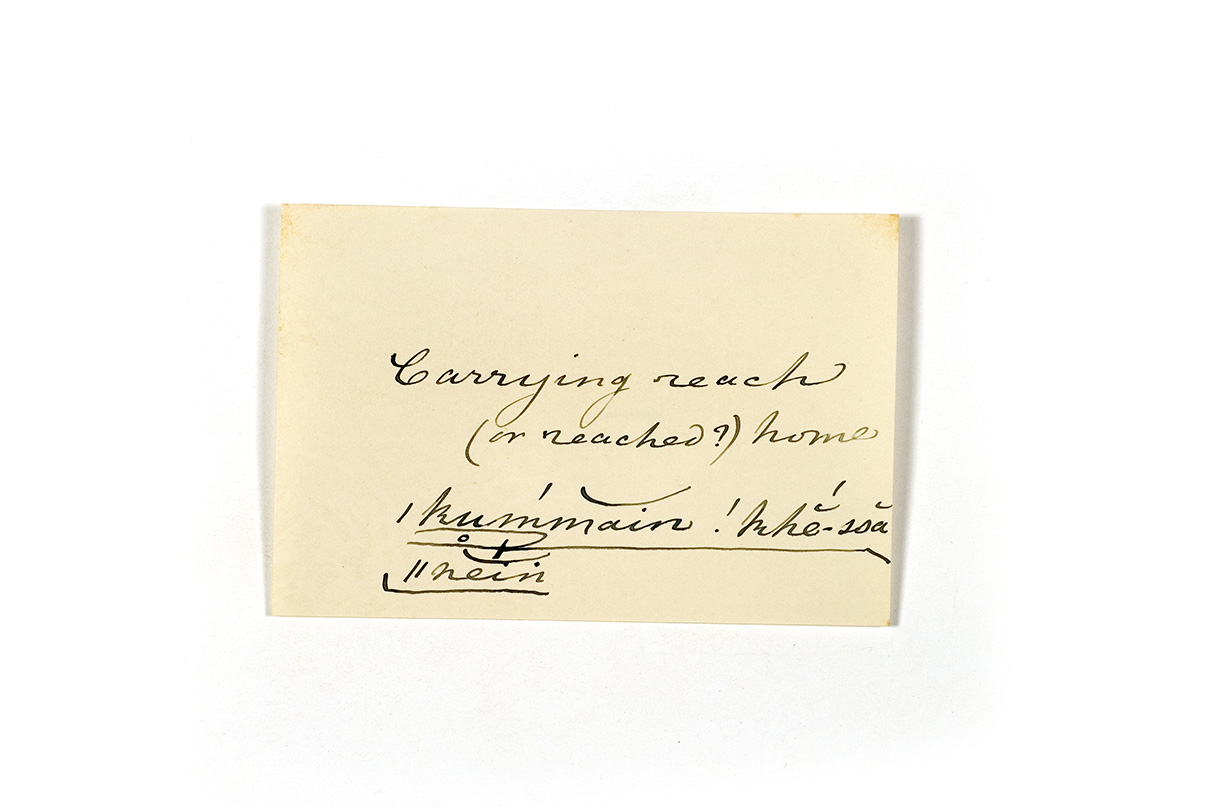 Carrying reach
(or reached?) home
|kum̆́main !khḗ̆-s̆oă
||nein